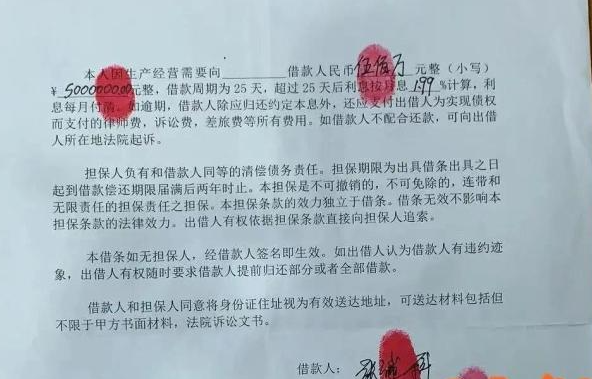 本人因生产经营需要向________借款人民币伍佰万元整（小写）
￥5000000.00元整，借款周期为 25 天，超过 25 天后利息按月息 1.99 %计算，利
息每月付清。如逾期，借款人除应归还约定本息外，还应支付出借人为实现债权
而支付的律师费，诉讼费，差旅费等所有费用。如借款人不配合还款，可向出借
人所在地法院起诉。
担保人负有和借款人同等的清偿债务责任。担保期限为出具借条出具之日
起到借款偿还期限届满后两年时止。本担保是不可撤销的，不可免除的，连带和
无限责任的担保责任之担保。本担保条款的效力独立于借条。借条无效不影响本
担保条款的法律效力。出借人有权依据担保条款直接向担保人追索。
本借条如无担保人，经借款人签名即生效。如出借人认为借款人有违约迹
象，出借人有权随时要求借款人提前归还部分或者全部借款。
借款人和担保人同意将身份证住址视为有效送达地址，可送达材料包括但
不限于甲方书面材料，法院诉讼文书。
借款人：